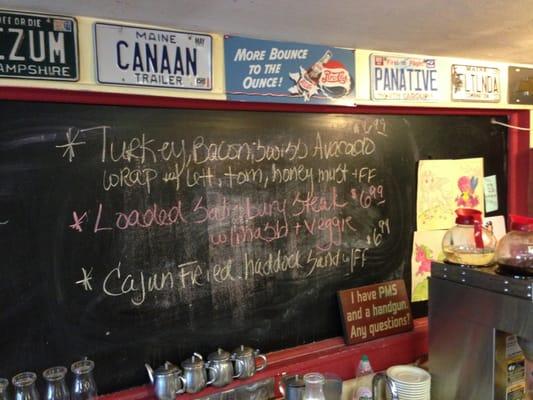 OR DIE
EZUM
MPSHIRE
MAINE
CANAAN
TRAILER
MORE BOUNCE
TO THE
OUNCE!
Pepsi-Cola
First in Flight
PANATIVE
NORTH CAROLINA
MAINE
LILNDA
* Turkey, Bacon, Swiss Avacado $6.99
wrap w/ Lett, tom, honey must + FF
* Loaded Salisbury Steak $6.99
w/ mash + Veggie
* Cajun Fried haddock Sand w/FF $6.99
I have PMS
and a handgun.
Any questions?